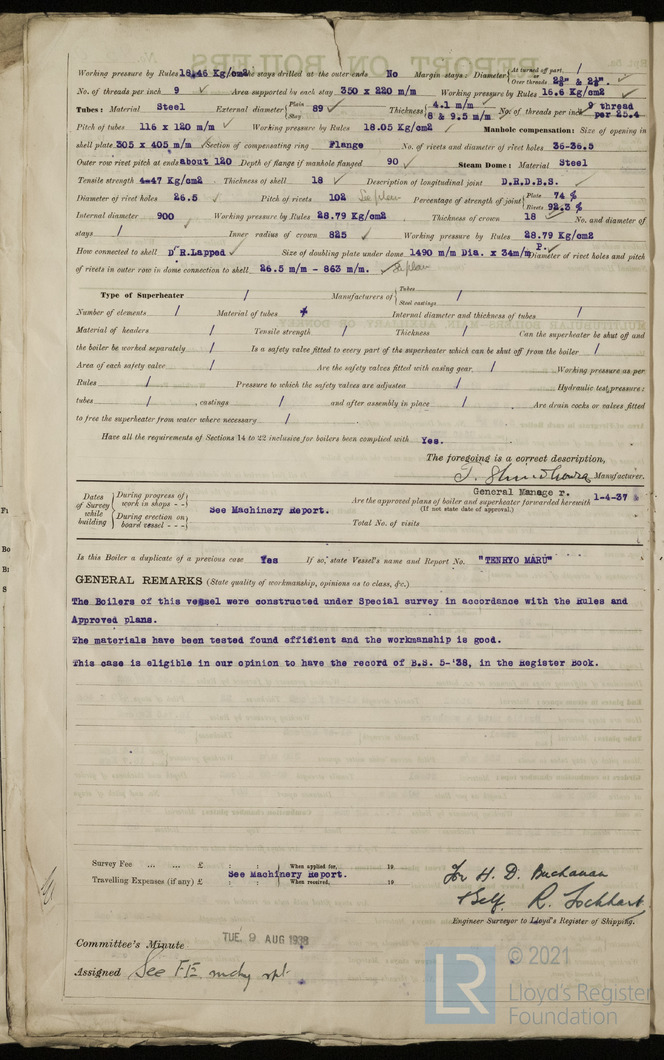 Working pressure by Rules 18.46 Kg/cm2 the stays drilled at the outer ends No Margin stays: Diameter {At turned off part, or Over threads / 2⅜" & 2½".
No. of threads per inch 9 Area supported by each stay 350 x 220 m/m Working pressure by Rules 16.6 Kg/cm2
Tubes: Material Steel External diameter {Plain Stay 89 Thickness {4.1 m/m 8 & 9.5 m/m No. of threads per inch 9 thread per 25.4
Pitch of tubes 116 x 120 m/m Working pressure by Rules 18.05 Kg/cm2 Manhole compensation: Size of opening in
shell plate 305 x 405 m/m Section of compensating ring Flange No. of rivets and diameter of rivet holes 36-36.5
Outer row rivet pitch at ends about 120 Depth of flange if manhole flanged 90 Steam Dome: Material Steel
Tensile strength 4-47 Kg/cm2 Thickness of shell 18 Description of longitudinal joint D.R.D.B.S.
Diameter of rivet holes 26.5 Pitch of rivets 102 See plan Percentage of strength of joint {Plate 74 % Rivets 92.3 %
Internal diameter 900 Working pressure by Rules 28.79 Kg/cm2 Thickness of crown 18 No. and diameter of
stays / Inner radius of crown 825 Working pressure by Rules 28.79 Kg/cm2
How connected to shell D R.Lapped Size of doubling plate under dome 1490 m/m Dia. x 34m/m P. Diameter of rivet holes and pitch
of rivets in outer row in dome connection to shell 26.5 m/m - 863 m/m. See plan
Type of Superheater / Manufacturers of {Tubes Steel castings /
Number of elements / Material of tubes / Internal diameter and thickness of tubes /
Material of headers / Tensile strength / Thickness / Can the superheater be shut off and
the boiler be worked separately / Is a safety valve fitted to every part of the superheater which can be shut off from the boiler /
Area of each safety valve / Are the safety valves fitted with easing gear / Working pressure as per
Rules / Pressure to which the safety valves are adjusted / Hydraulic test pressure:
tubes / , castings / and after assembly in place / Are drain cocks or valves fitted
to free the superheater from water where necessary /
Have all the requirements of Sections 14 to 22 inclusive for boilers been complied with Yes.
The foregoing is a correct description,
Manufacturer.
General Manager.
Dates of Survey while building {During progress of work in shops - - During erection on board vessel - - - See Machinery Report. Are the approved plans of boiler and superheater forwarded herewith 1-4-37
(If not state date of approval.)
Total No. of visits
Is this Boiler a duplicate of a previous case Yes If so, state Vessel's name and Report No. "TENRYO MARU"
GENERAL REMARKS (State quality of workmanship, opinions as to class, &c.)
The Boilers of this vessel were constructed under Special survey in accordance with the Rules and
Approved plans.
The materials have been tested found efficient and the workmanship is good.
This case is eligible in our opinion to have the record of B.S. 5-'38, in the Register Book.
Survey Fee ... ... £ : : When applied for, 19
See Machinery Report.
Travelling Expenses (if any) £ : : When received, 19
For H. D. Buchanan
Self R. Lockhart
Engineer Surveyor to Lloyd's Register of Shipping.
Committee's Minute TUE. 9 AUG 1938
Assigned See F.E. mchy rpt
LR © 2021
Lloyd's Register
Foundation